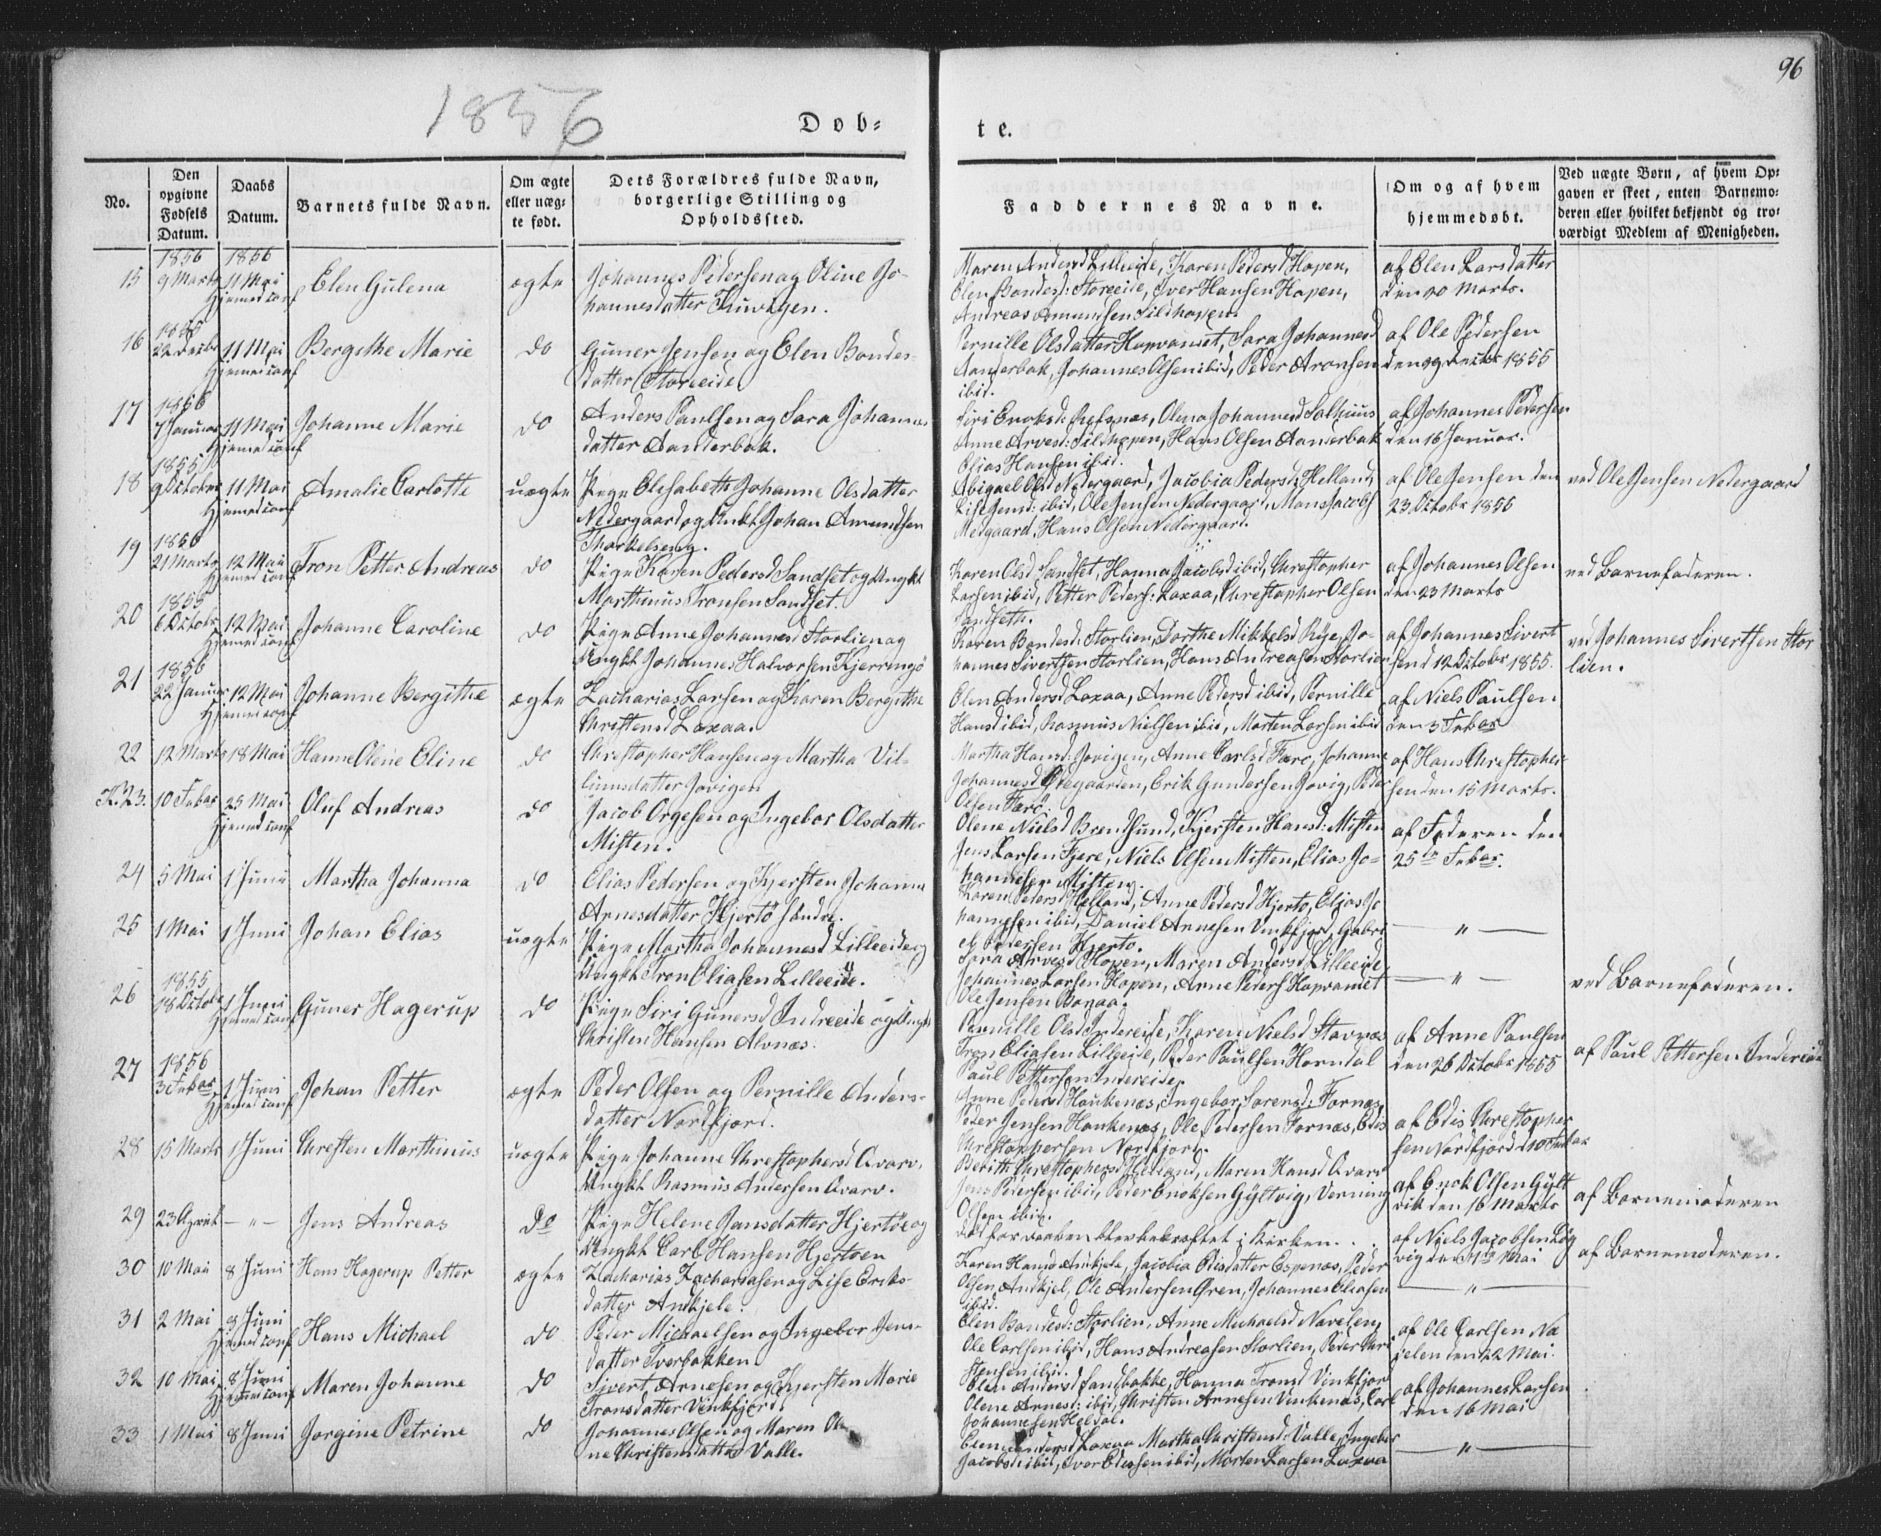 96
1856
Døb-
te.
No.
Den opgivne Fødsels Datum.
Daabs Datum.
Barnets fulde Navn.
Om ægte eller uægte født.
Dets Forældres fulde Navn, borgerlige Stilling og Opholdssted.
Faddernes Navne.
Om og af hvem hjemmedøbt.
Ved uægte Børn, af hvem Opgaven er skeet, enten Barnemoderen eller hvilket bekjendt og troværdigt Medlem af Menigheden.
1856 1856
15 9 Marts 11 Mai Elen Gulena ægte Johannes Pedersen og Oline Jo-
hannesdatter
Maren Andersd Lilleeide, Karen Pedersd Hopen,
Elen Bondesd: Storeeide, Iver Hansen Hopen,
Andreas Amundsen Sildhopen.
af Elen Larsdatter
den 20 Marts.
16 1855 22 Decbr 11 Mai Bergithe Marie do Guner Jensen og Elen Bondes-
datter Storeeide
Pernille Olsdatter Hopvandet, Sara Johannesd
Aanderbak, Johannes Olsen ibid, Peder Aronsen
ibid.
af Ole Pedersen
1855
17 1856 7 Januar 11 Mai Johanne Marie do Anders Paulsen og Sara Johannes
datter Aanderbak.
Siri Enoksd: Refsnæs, Olena Johannesd
Anne Arvesd: Sildhopen, Hans Olsen Aanderbak
Elias Hansen ibid.
af Johannes Pedersen
den 16 Januar.
18 1855 9 Octobr 11 Mai Amalie Carlotte uægte Pige Elisabeth Johanne Olsdatter
Nedergaard og Unkt Johan Amundsen
Abigael Olsd Nedergaard, Jacobia Pedersd: Helland,
Lise Jensd: ibid, Ole Jensen Nedergaard, Mons Jacobs
Medgaard, Hans Olsen Nedergaard.
af Ole Jensen den
23 Octobr 1855
ved Ole Jensen Nedergaard
19 1856 21 Marts 12 Mai Tron Petter Andreas do Pige Karen Pedersd Sandset og Ungkt
Marthinus Tronsen Sandset.
Karen Olsd Sandset, Hanna Jacobsd ibid, Christopher
Larsen ibid, Petter Peders: Laxaa, Christopher Olsen
Sandseth.
af Johannes Olsen
den 23 Marts
ved Barnefaderen.
20 1855 6 Octobr 12 Mai Johanne Caroline do Pige Anne Johannesd Storlien og
Ungkt Johannes Halvorsen Kjerringø
Karen Bondesd: Storlien, Dorthe Mikkelsd Røe, Jo-
hannes Sivertsen Storlien, Hans Andreasen Storlien
af Johannes Sivert
sen d 12 Octobr 1855.
ved Johannes Sivertsen Stor
lien.
21 1856 22 Januar 12 Mai Johanne Bergithe ægte Zacharias Larsen og Karen Bergithe
Christensd Laxaa.
Elen Andersd Laxaa, Anne Pedersd ibid, Pernille
Hansd ibid, Rasmus Nielsen ibid, Morten Larsen ibid
af Niels Paulsen
den 3 Febar
22 12 Marts 18 Mai Hanne Olene Eline do Christopher Hansen og Martha Vil-
lumsdatter Jovigen
Martha Hansd: Jovigen, Anne Carlsd Færø, Johanne
Johannesd Ødegaarden, Erik Gundersen Jovig, Peder
Olsen Færø.
af Hans Christopher-
sen den 15 Marts.
23. 10 Febar 25 Mai Oluf Andreas do Jacob Ørgesen og Ingebor Olsdatter
Misten.
Olene Nielsd Brendsund, Kjersten Hansd: Misten
Jens Larsen Fjere, Niels Olsen Misten, Elias Jo-
hannesen Misten.
af Faderen den
25de Febar.
24 5 Mai 1 Juni Martha Johanna do Elias Pedersen og Kjersten Johanna
Arnesdatter Hjertø søndre.
Karen Pedersd Helland, Anne Pedersd Hjertø, Elias Jo
hannesen ibid, Daniel Arnesen Vinkfjord, Gabri
el Pedersen Hjertø.
— " —
25 1 Mai 1 Juni Johan Elias uægte Pige Martha Johannesd Lilleeide og
Ungkt Tron Eliasen Lilleeide.
Sara Arvesd Hopen, Maren Andersd Lilleeide,
Johannes Larsen Hopen, Arne Peders Hopvandet
Ole Jensen Bogaa.
— " —
ved Barnefaderen.
26 1855 18 Octobr 1 Juni Guner Hagerup do Pige Siri Gunersd Indreeide og Ungkt
Christen Hansen Alvnæs.
Pernille Olsd Indereide, Karen Nielsd Stavnæs
Tron Eliasen Lilleeide, Peder Paulsen Horndal
Paul Pettersen Indereide.
af Anne Paulsen
den 26 Octobr 1855
af Paul Pettersen Indereide
27 1856 3 Febar 1 Juni Johan Petter ægte Peder Olsen og Pernille Anders-
datter Nordfjord.
Anne Pedersd Haukenæs, Ingebor Sørensd: Fornæs
Peder Jensen Haukenæs, Ole Pedersen Fornæs, Edis
Christophersen Nordfjord.
af Edis Christopher
sen Nordfjord
28 15 Marts 1 Juni Christen Marthinus uægte Pige Johanne Christophersd Qvarv,
Ungkt Rasmus Andersen Qvarv.
Berith Christophersd Helland, Maren Hansd Qvarv
Jens Pedersen ibid, Peder Enoksen Gyltvig,
Olsen ibid.
af Enok Olsen Gylt
vik den 16 Marts
af Barnemoderen
29 23 April — " — Jens Andreas do Pige Helene Jansdatter Hjertø og
Ungkt Carl Hansen Hjertøen
af Niels Jacobsen Løg
vig den Mai
af Barnemoderen.
30 10 Mai 8 Juni Hans Hagerup Petter ægte Zacharias Zachariasen og Lise Eriks-
datter Ankjele.
Karen Hansd Ankjele, Jacobia Edisdatter Espenæs, Peder
Olsen Ankjel, Ole Andersen Green, Johannes Eliasen
ibid.
— " —
31 2 Mai 8 Juni Hans Michael do Peder Michaelsen og Ingebor Jens-
datter Tverbakken
Elen Bondesd: Storlien, Anne Michaelsd Navelen,
Ole Carlsen ibid, Hans Andreasen Storlien, Peder Chri
stensen ibid.
af Ole Carlsen Na
velen den 22 Mai.
32 10 Mai 8 Juni Maren Johanne do Sivert Arnesen og Kjersten Marie
Tronsdatter Vinkfjord.
Elen Andersd Sandbakke, Hanna Tronsd Vinkfjor
Olene Arnesd: ibid, Christen Arnesen Vinkenæs, Carl
Johannesen Heldal.
af Johannes Larsen
den 16 Mai
33 1 Mai 8 Juni Jorgine Petrine do Johannes Olsen og Maren
ne Christensdatter Valle.
Elen Andersd Laxaa Martha Christensd: Valle, Ingebor
Jacobsd ibid, Iver Edissen ibid, Morten Larsen Laxaa
— " —